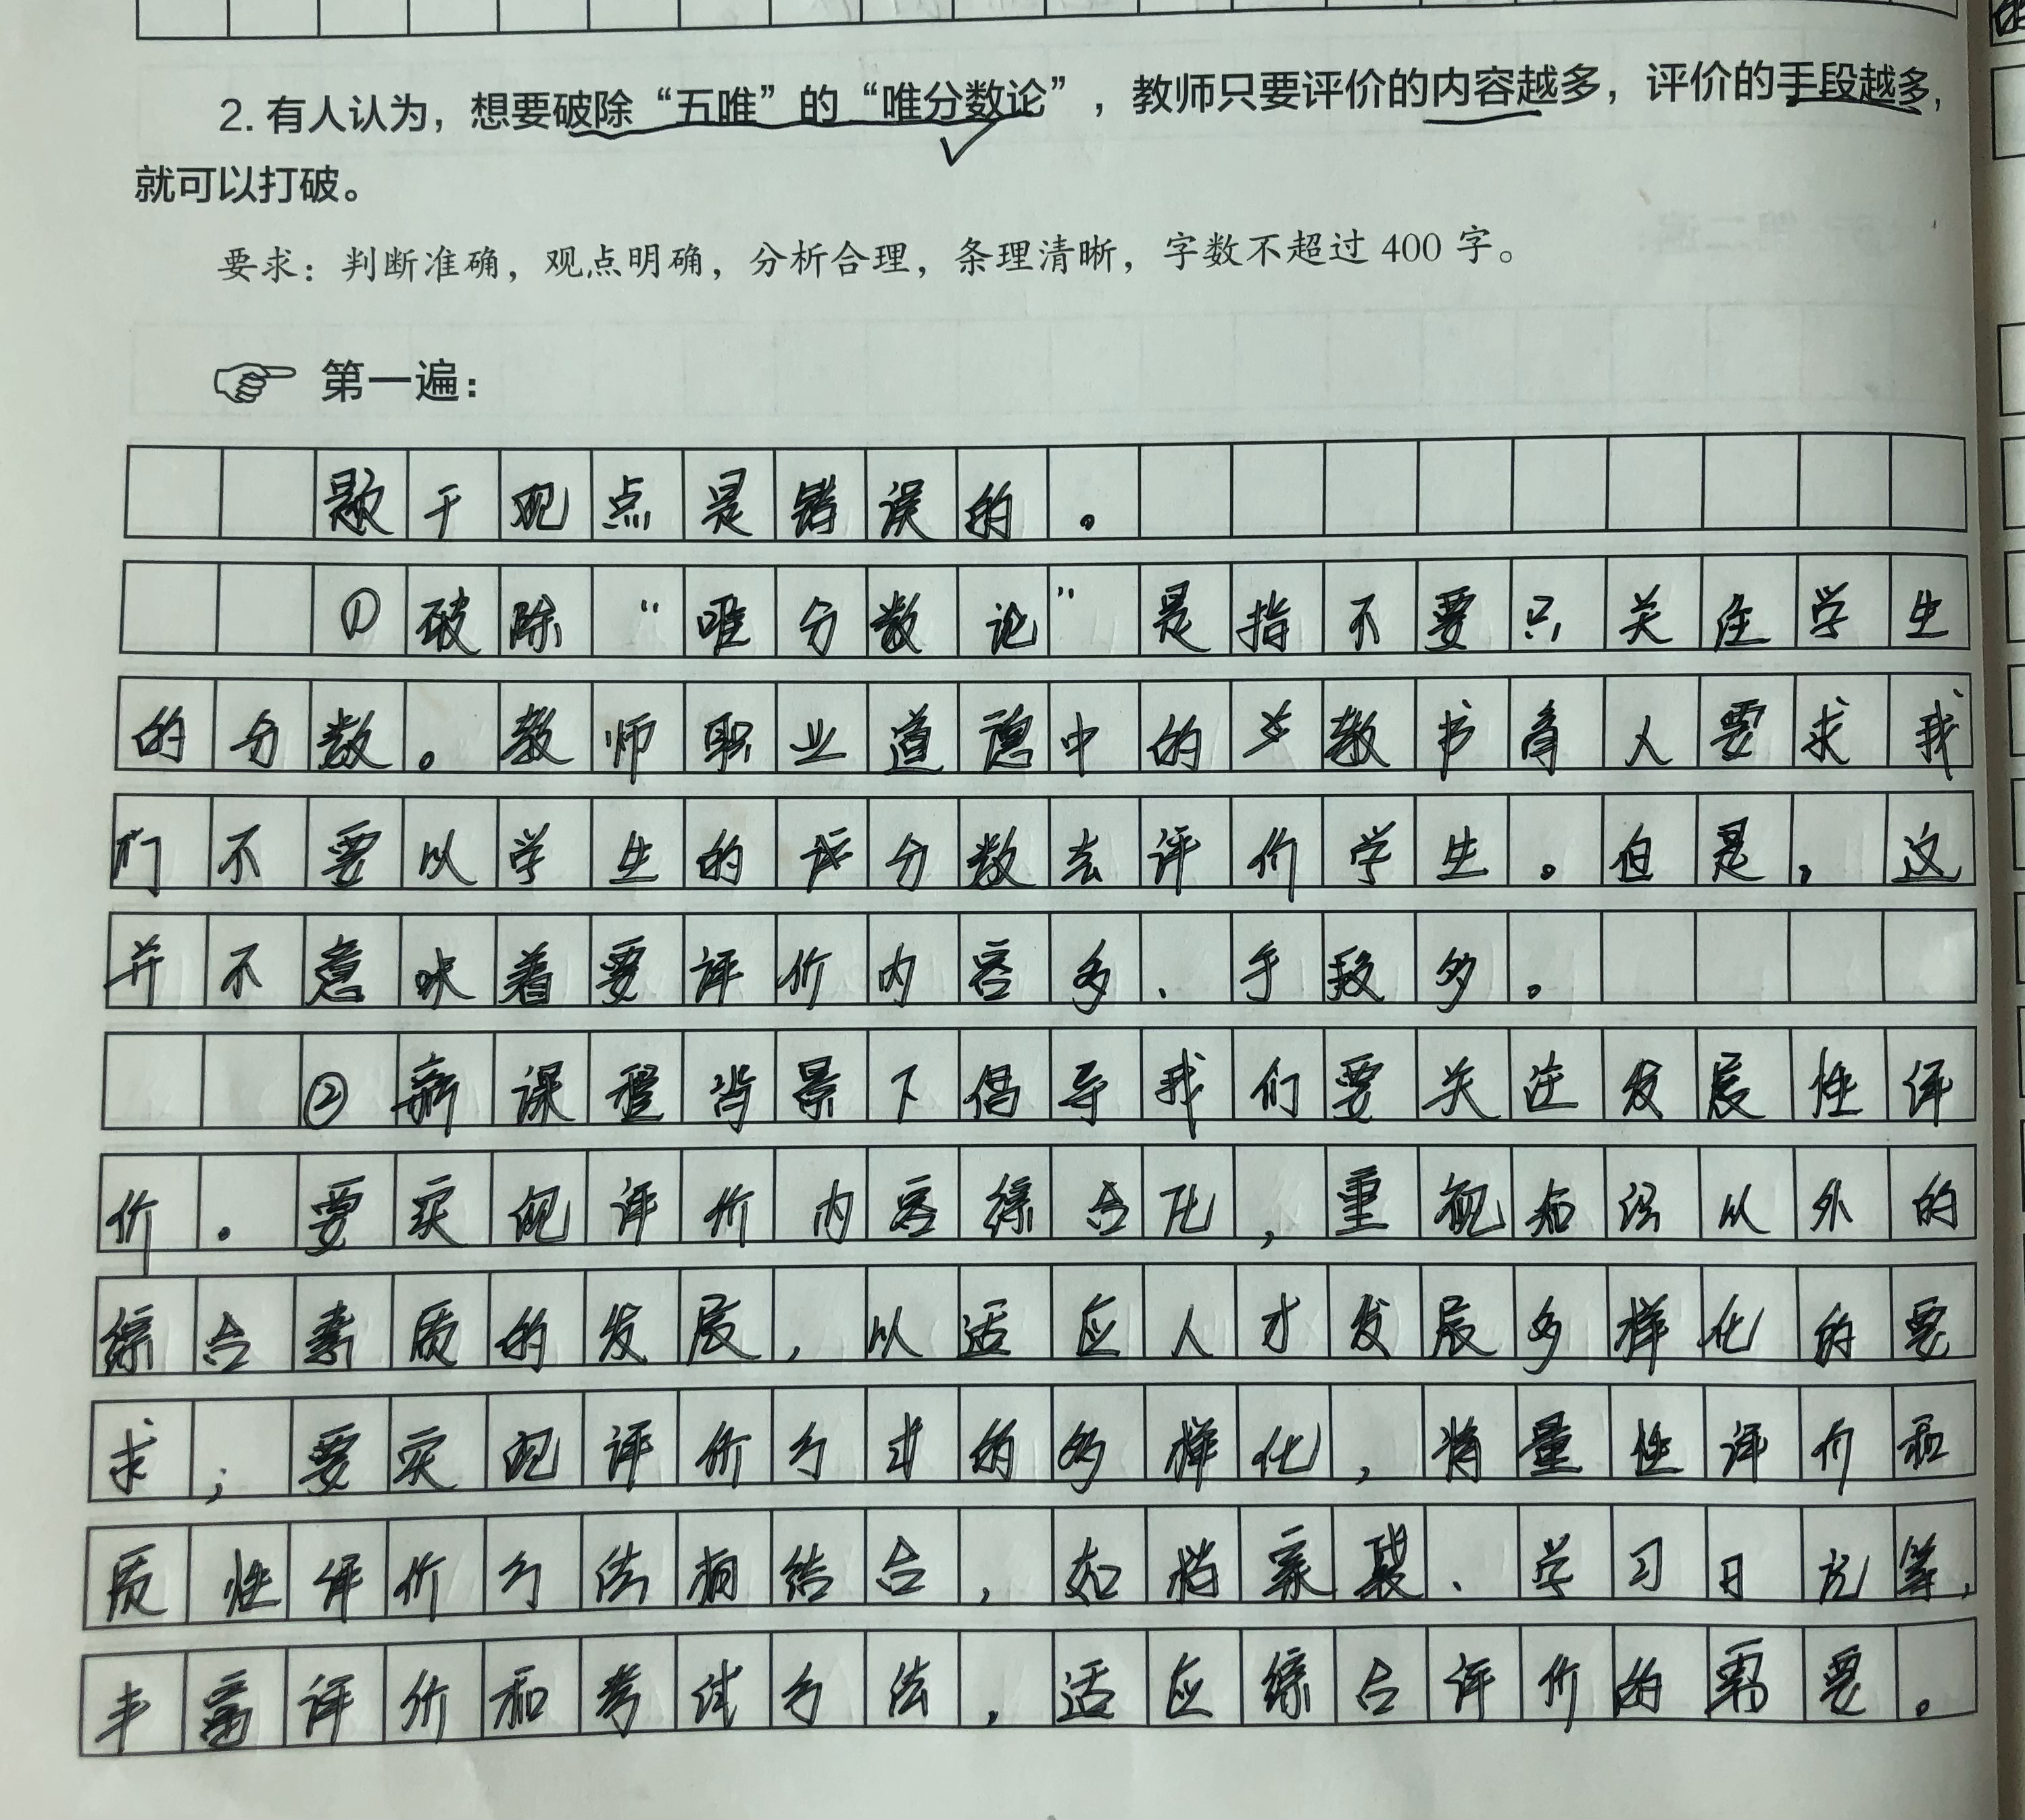 2. 有人认为，想要破除“五唯”的“唯分数论”，教师只要评价的内容越多，评价的手段越多，
就可以打破。
要求：判断准确，观点明确，分析合理，条理清晰，字数不超过 400 字。
第一遍：
题干观点是错误的。
①破除“唯分数论”是指不要只关注学生
的分数。教师职业道德中的教书育人要求我
们不要以学生的分数去评价学生。但是，这
并不意味着要评价内容多、手段多。
②新课程背景下倡导我们要关注发展性评
价。要实现评价内容综合化，重视知识以外的
综合素质的发展，以适应人才发展多样化的要
求；要实现评价方式的多样化，将量性评价和
质性评价方法相结合，如档案袋、学习日记等，
丰富评价和考试方法，适应综合评价的需要。